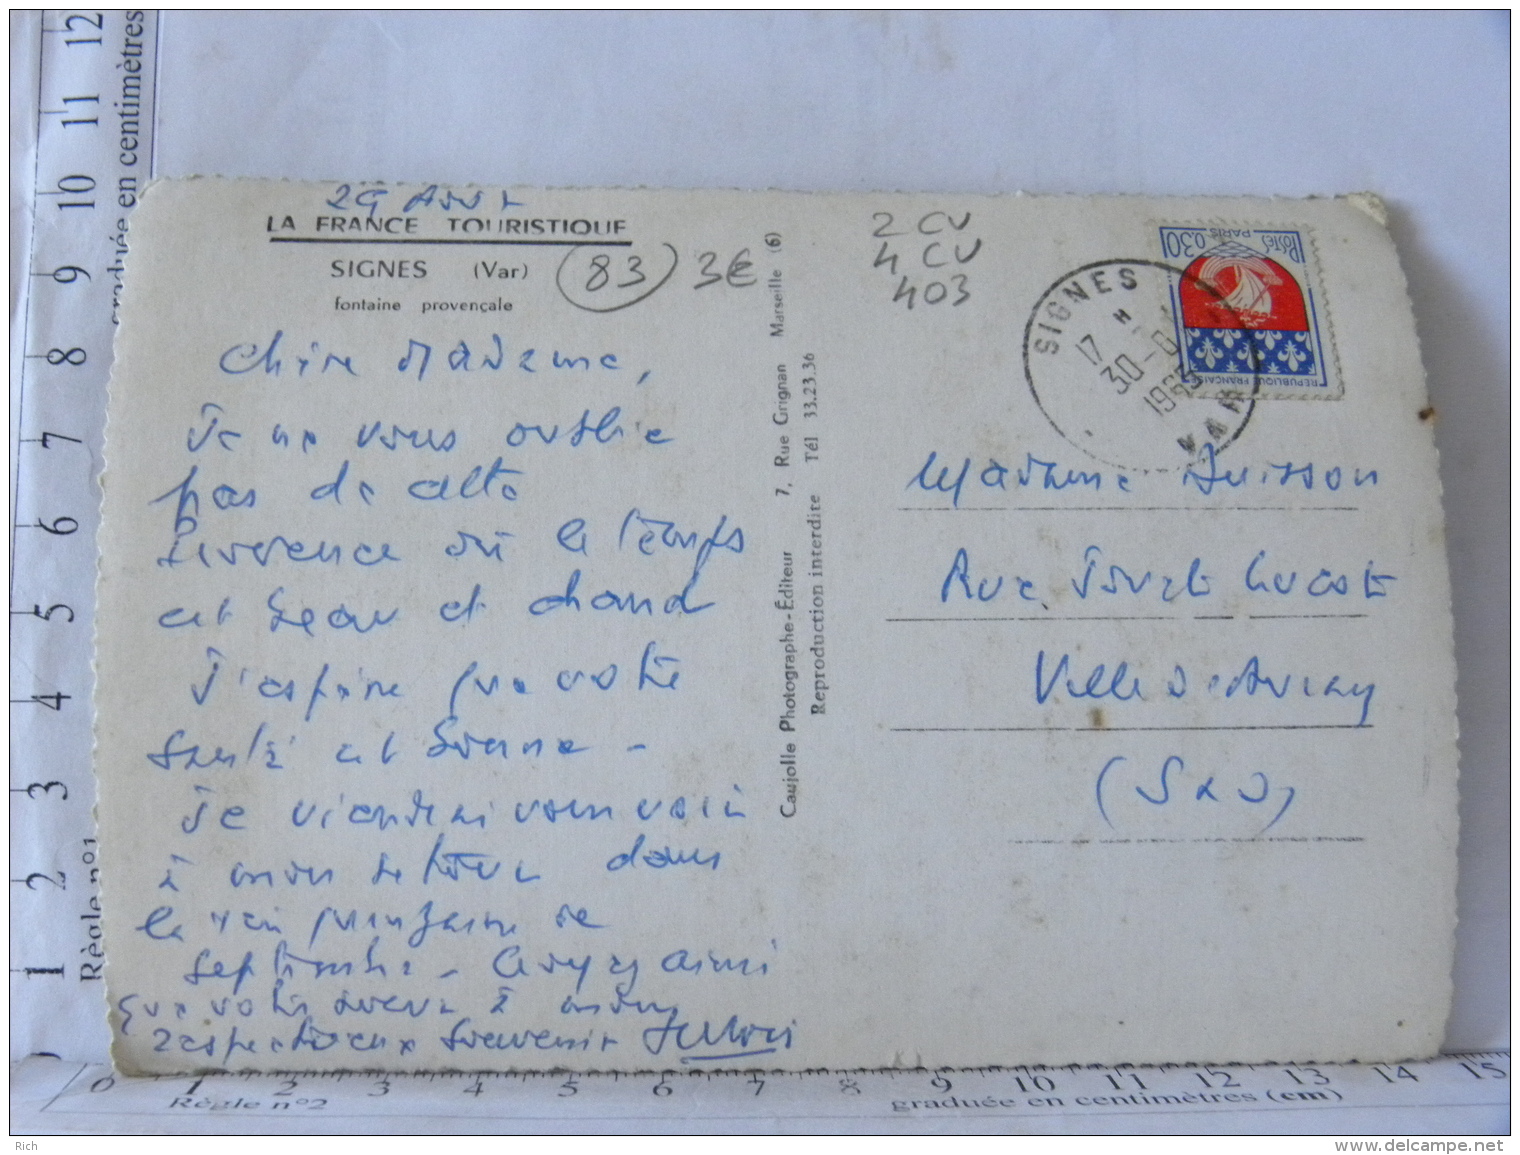 29 Août
LA FRANCE TOURISTIQUE
SIGNES (Var)
fontaine provençale
83
3€
2 CV
4 CV
403
Chère Madame,
Je ne vous oublie
pas de cette
Provence où le temps
est beau et chaud
J'espère que votre
santé est bonne -
Je viendrai vous voir
à mon retour dans
la
quinzaine de
septembre - Croyez ainsi
que votre soeur à mon
respectueux souvenir
Caujolle Photographe-Éditeur 7, Rue Grignan Marseille (6)
Reproduction interdite Tél 33.23.36
SIGNES
17 H
30-8
1965
VAR
POSTES PARIS 0.30
REPUBLIQUE FRANÇAISE
Madame Buisson
Rue
Ville d'Avray
(S & O)
Règle n°1
graduée en centimètres
1 2 3 4 5 6 7 8 9 10 11 12
0 1 2 3 4 5 6 7 8 9 10 11 12 13 14 15
Règle n°2
graduée en centimètres (cm)
Rich
www.delcampe.net